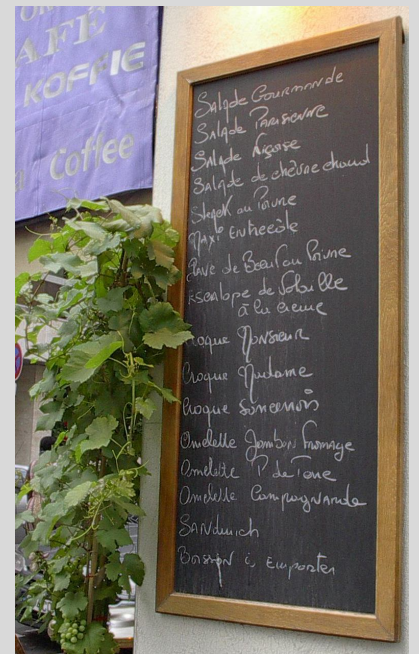 CAFÉ
KOFFIE
Coffee
Salade Gourmande
Salade Parisienne
Salade Niçoise
Salade de chèvre chaud
Steak au Poivre
Maxi Entrecôte
Pavé de Boeuf au Poivre
Escalope de Volaille
à la creme
Croque Monsieur
Croque Madame
Croque
Omelette Jambon Fromage
Omelette P. de Terre
Omelette Campagnarde
Sandwich
Boisson à Emporter